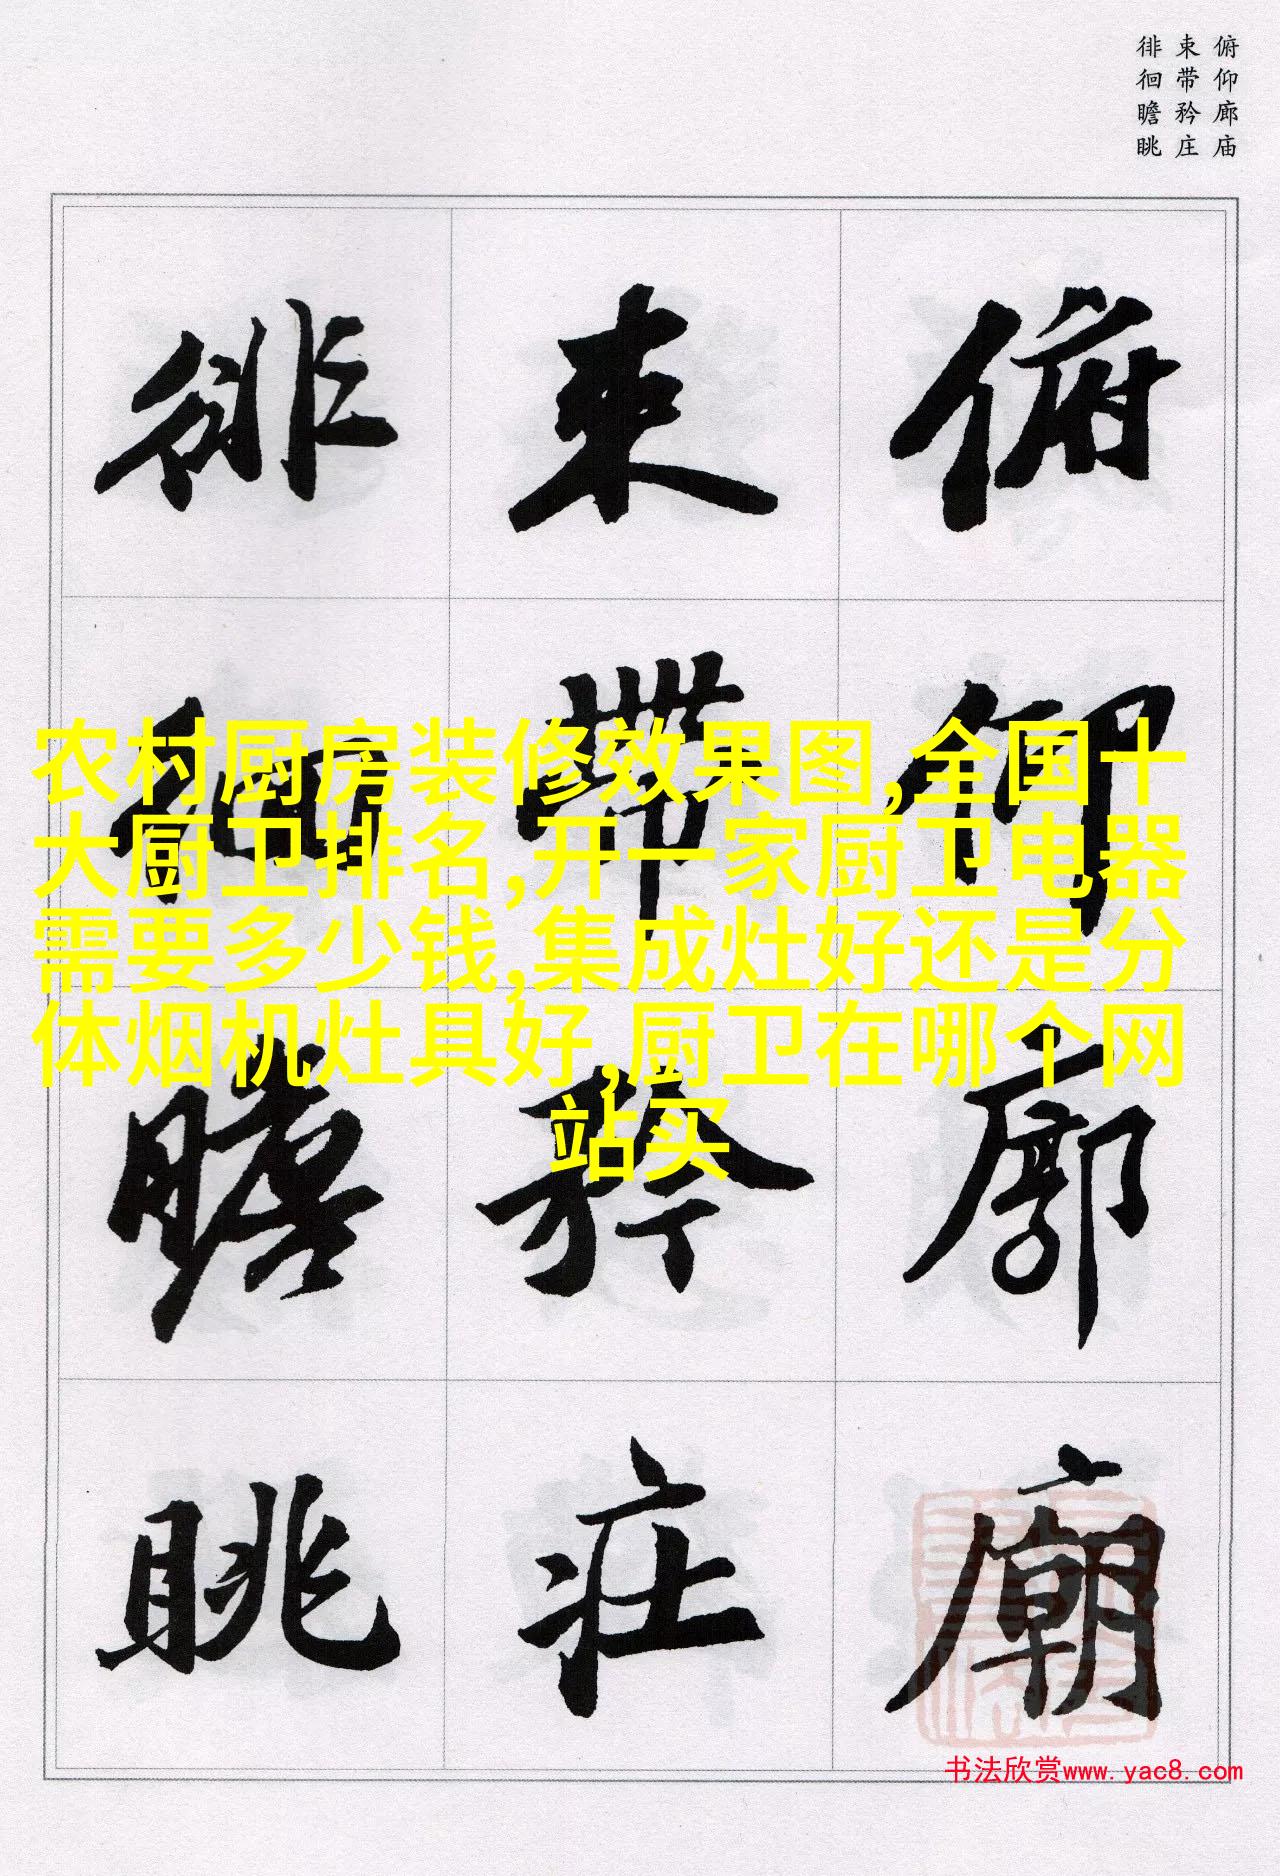 俯仰廊庙
束带矜庄
徘徊瞻眺
俯仰廊廟
束帶矜莊
徘徊瞻眺
农村厨房装修效果图,全国十
大厨卫排名,开一家厨卫电器
需要多少钱,集成灶好还是分
体烟机灶具好,厨卫在哪个网
站买
书法欣赏www.yac8.com